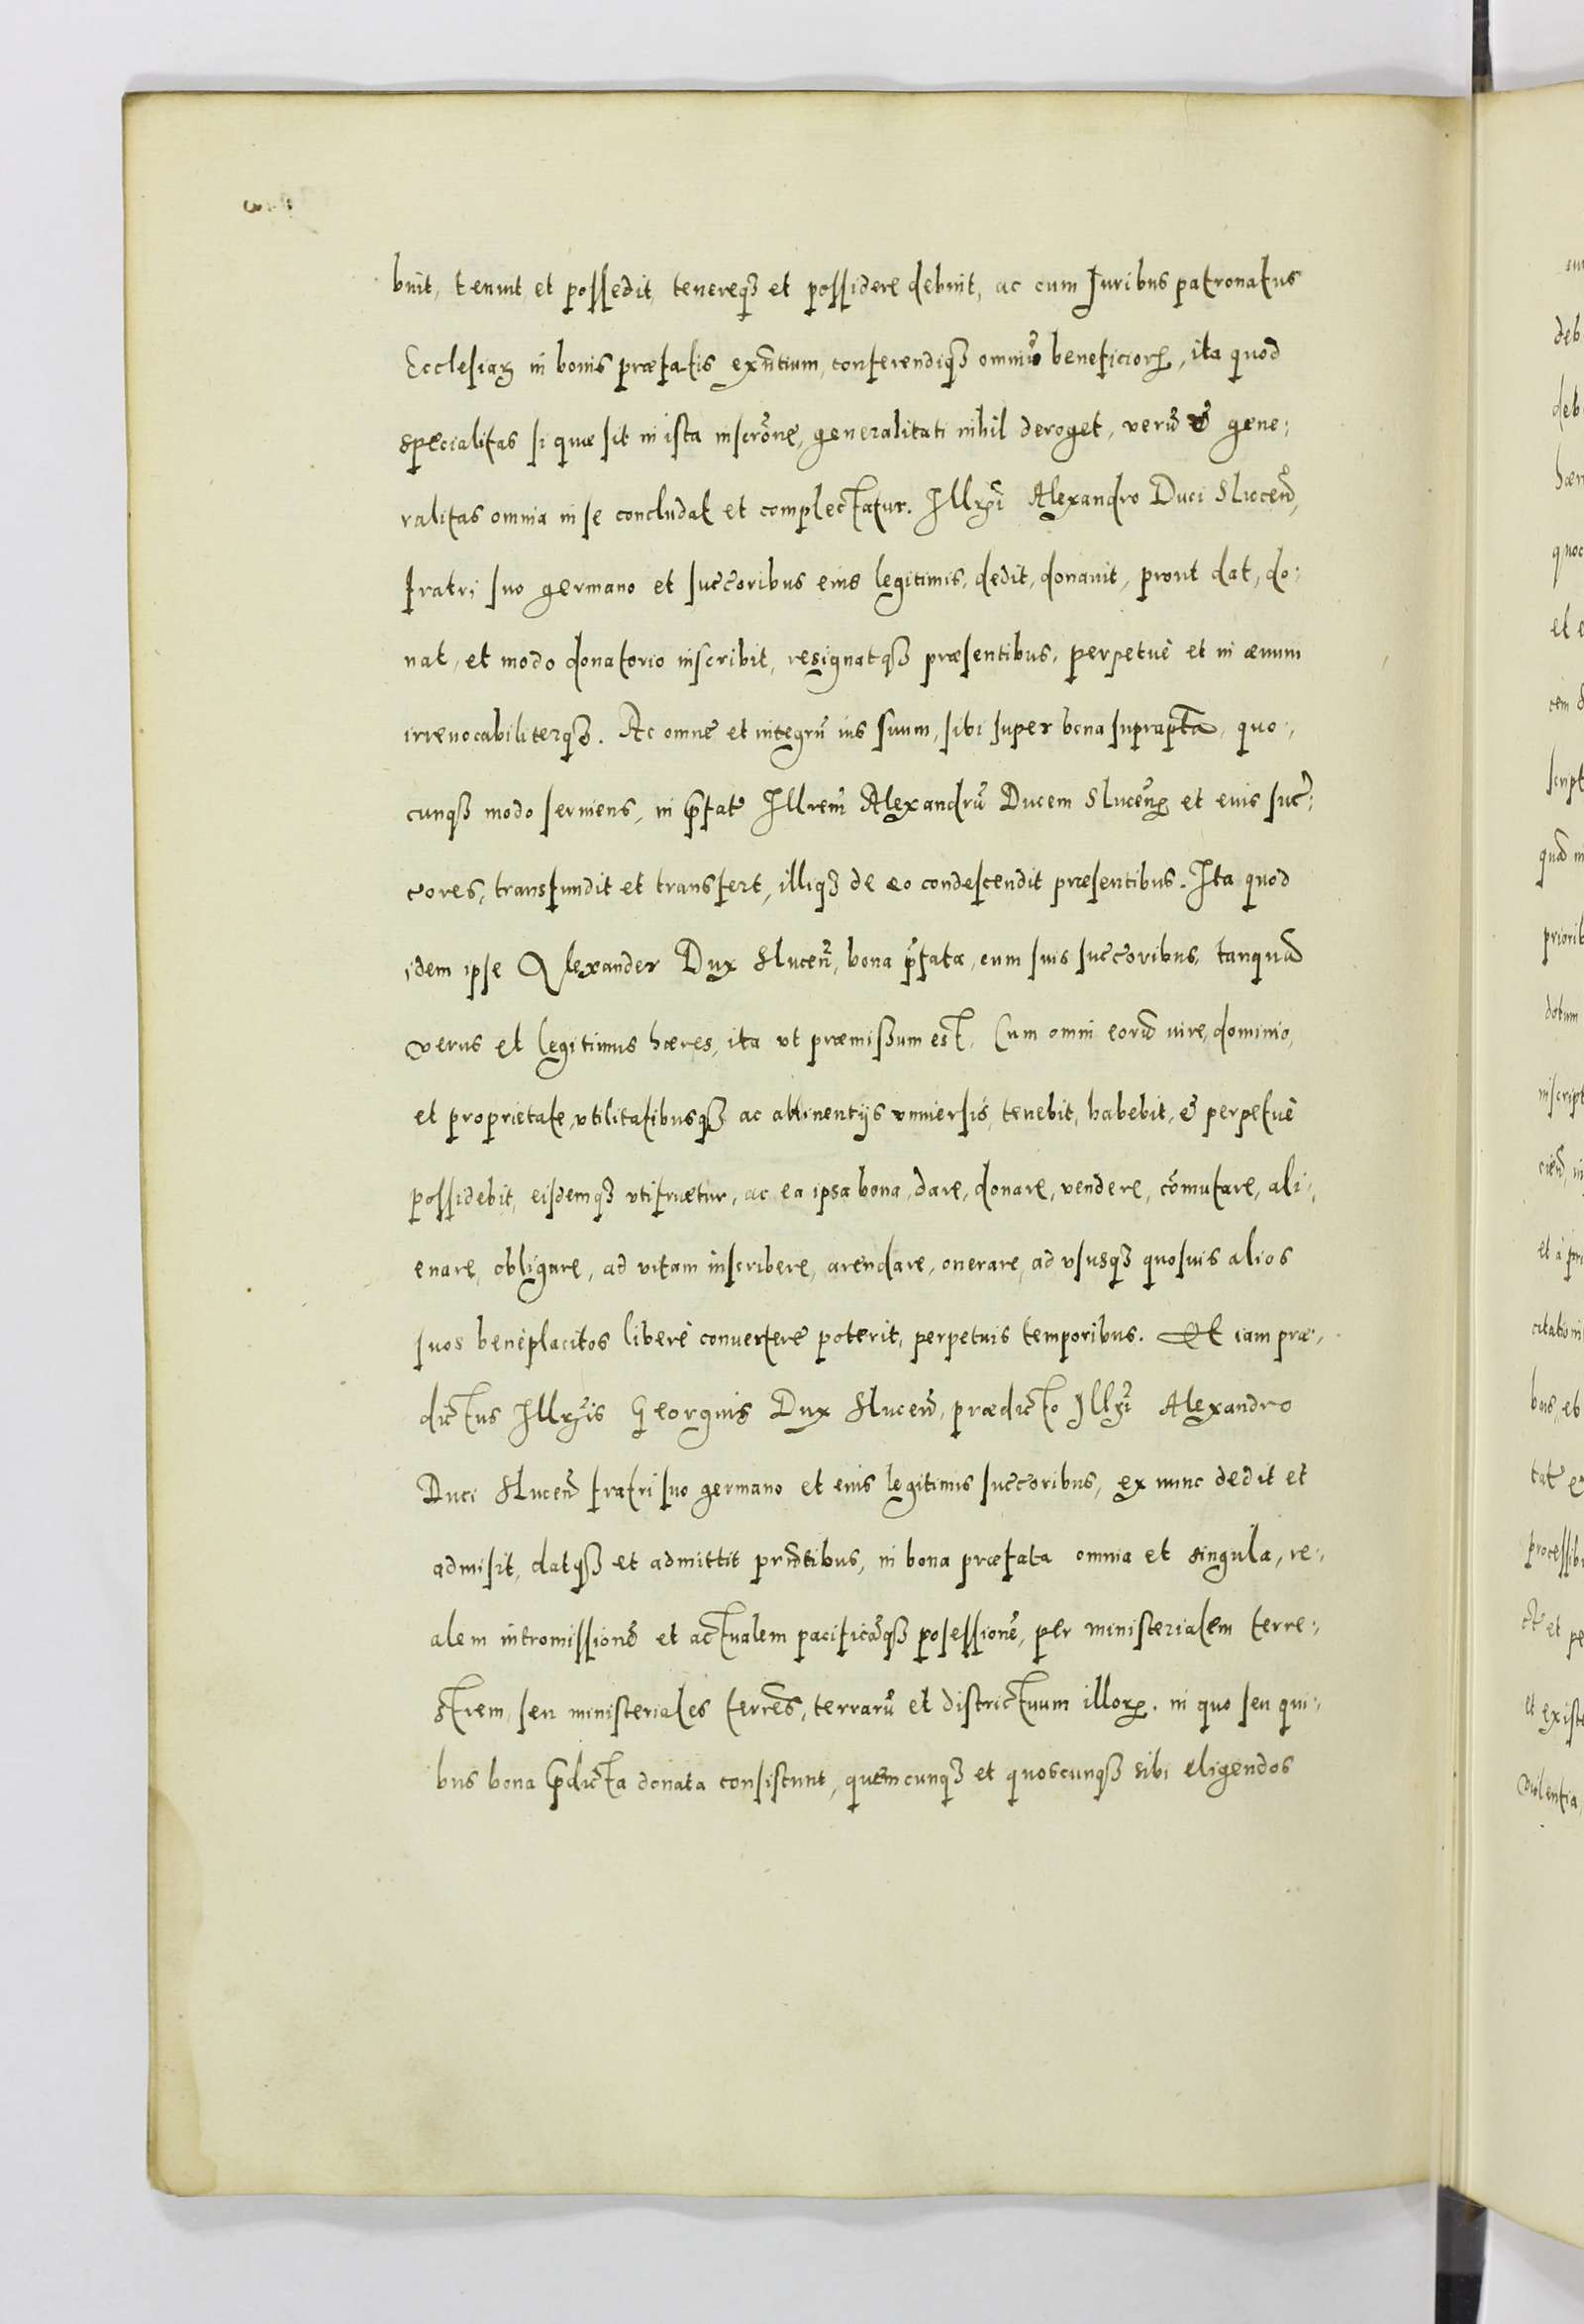 buit, tenuit et possedit, tenereqȝ et possidere debuit, ac cum Juribus patronatus
Ecclesiaꝝ in bonis præfatis exñtium, conferendiqȝ omniũ beneficioꝝ, ita quod
specialitas si quæ sit in ista inscrõne, generalitati nihil deroget, verũ & gene:
ralitas omnia in se concludat et complectatur. Illrĩ Alexandro Duci Sluceñ,
fratri suo germano et succ̃oribus eius legitimis, dedit, donauit, prout dat, do:
nat, et modo donatorio inscribit, resignatqȝ præsentibus, perpetuè et in æuum
irreuocabiliterqȝ. Ac omne et integrũ ius suum, sibi super bona suprapta, quo:
cunqȝ modo seruiens, in p̃fatũ Illrem̃ Alexandrũ Ducem Slucen̄ȝ et eius succ̃:
cores, transfundit et transfert, illiqȝ de eo condescendit præsentibus. Ita quod
idem ipse Alexander Dux Sluceñ, bona p̃fata, cum suis succ̃oribus, tanquã
verus et legitimus hæres, ita vt præmissum est, Cum omni eorũ iure, dominio,
et proprietate, vtilitatibusqȝ ac attinentijs vniuersis, tenebit, habebit, & perpetuè
possidebit, eisdemqȝ vtifruetur, ac ea ipsa bona, dare, donare, vendere, cõmutare, ali:
enare, obligare, ad vitam inscribere, arendare, onerare, ad vsusqȝ quosuis alios
suos beneplacitos liberè conuertere poterit, perpetuis temporibus. Et iam præ:
dictus Illrĩs Georgius Dux Sluceñ, prædicto Illrĩ Alexandro
Duci Sluceñ fratri suo germano et eius legitimis succ̃oribus, ex nunc dedit et
admisit, datqȝ et admittit prñtibus, in bona præfata omnia et singula, re:
alem intromissionẽ et actualem pacificãqȝ posessionẽ, per ministerialem terre:
strem, seu ministeriales terrẽs, terrarũ et districtuum illoꝝ. in quo seu qui:
bus bona p̃dicta donata consistunt, quemcunqȝ et quoscunqȝ sibi eligendos